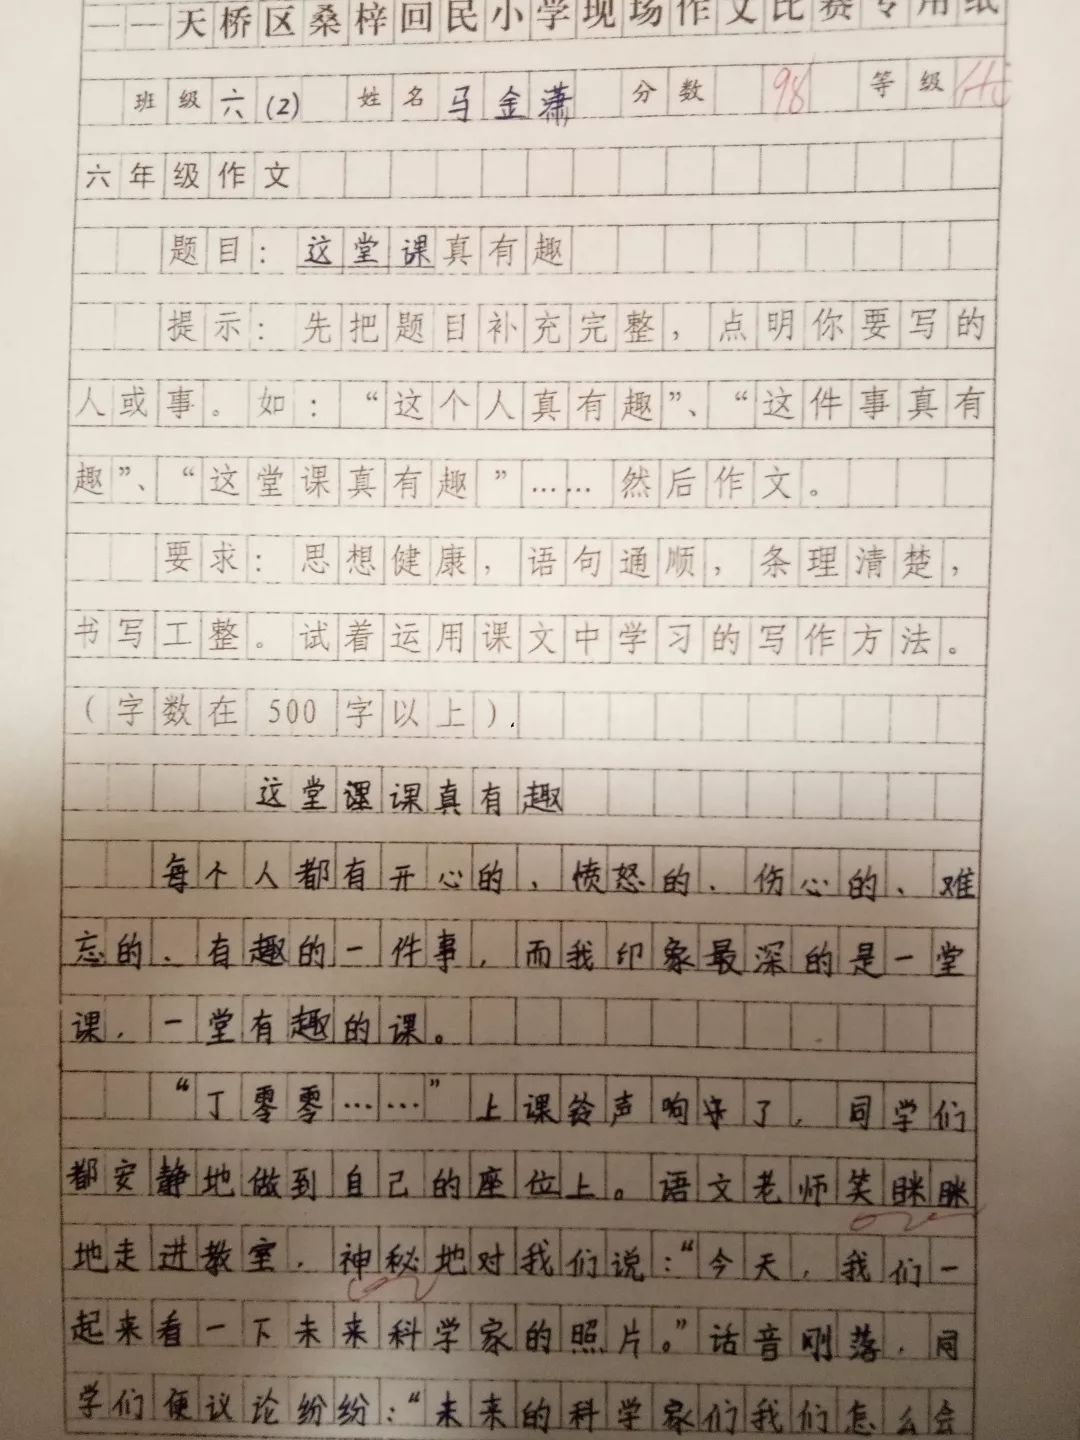 ——天桥区桑梓回民小学现场作文比赛专用纸
班级六(2) 姓名马金萧 分数98 等级
六年级作文
题目：这堂课真有趣
提示：先把题目补充完整，点明你要写的
人或事。如：“这个人真有趣”、“这件事真有
趣”、“这堂课真有趣”……然后作文。
要求：思想健康，语句通顺，条理清楚，
书写工整。试着运用课文中学习的写作方法。
（字数在500字以上）.
这堂课真有趣
每个人都有开心的、愤怒的、伤心的、难
忘的、有趣的一件事，而我印象最深的是一堂
课，一堂有趣的课。
“丁零零……”上课铃声响了，同学们
都安静地做到自己的座位上。语文老师笑眯眯
地走进教室，神秘地对我们说：“今天，我们一
起来看一下未来科学家的照片。”话音刚落，同
学们便议论纷纷：“未来的科学家们我们怎么会